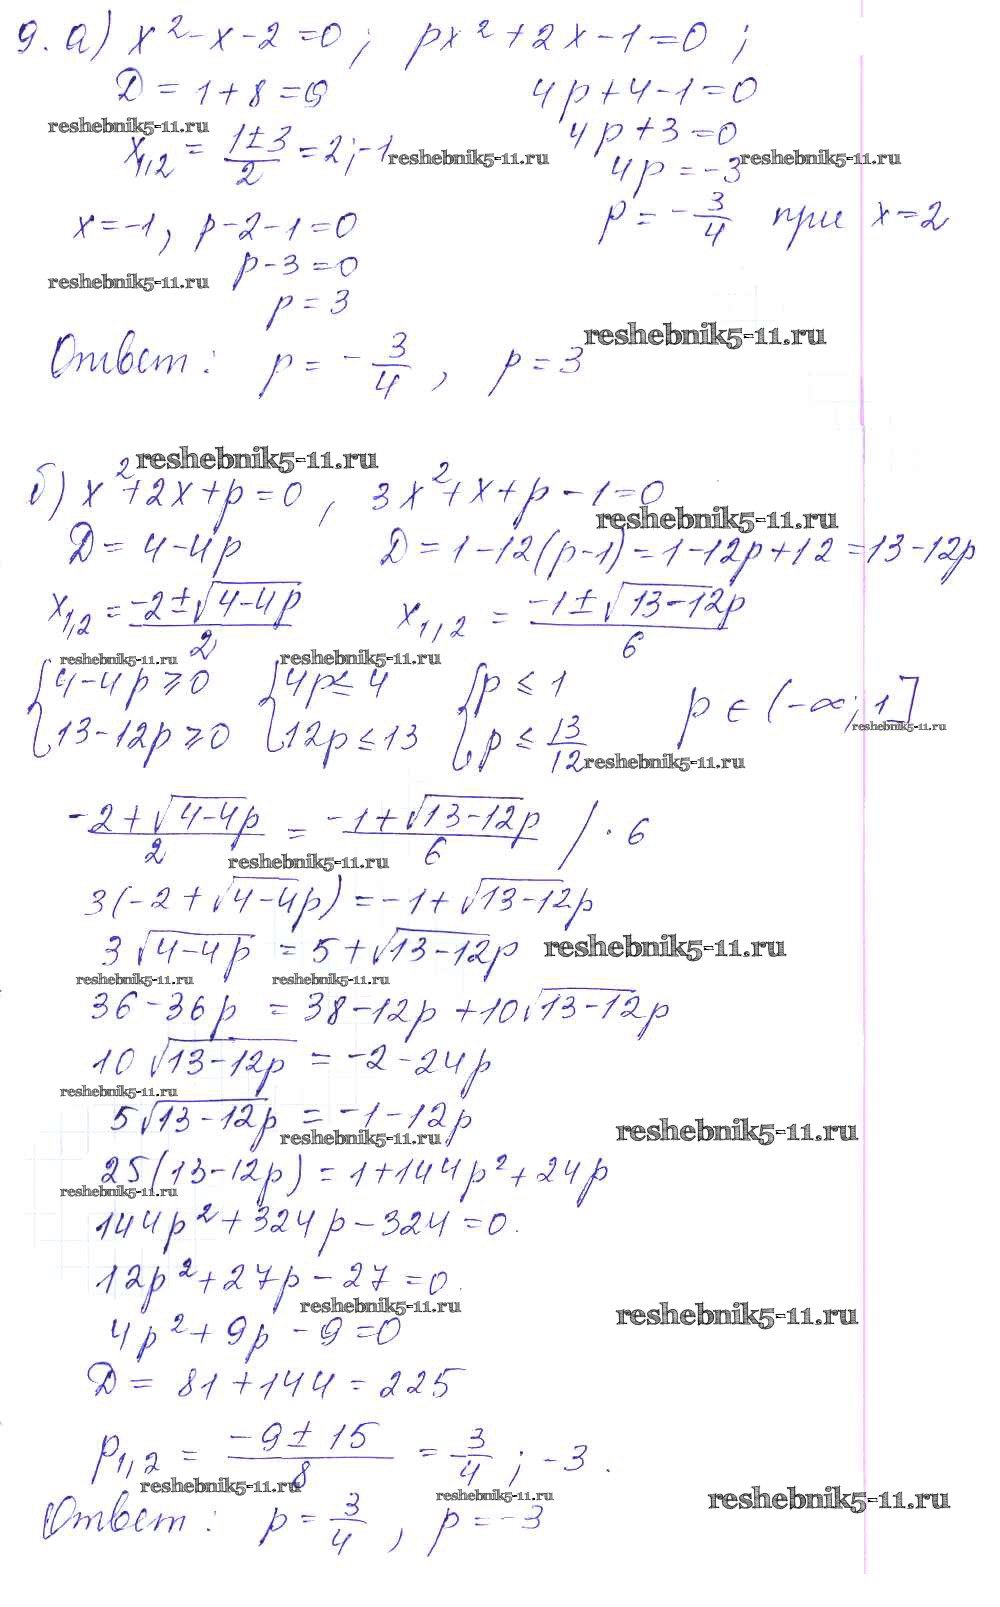 9. а) x² - x - 2 = 0; px² + 2x - 1 = 0;
Д = 1 + 8 = 9 4p + 4 - 1 = 0
reshebnik5-11.ru 4p + 3 = 0
x₁,₂ = (1 ± 3)/2 = 2; -1 reshebnik5-11.ru 4p = -3 reshebnik5-11.ru
x = -1, p - 2 - 1 = 0 p = -3/4 при x = 2
reshebnik5-11.ru p - 3 = 0
p = 3
reshebnik5-11.ru
Ответ: p = -3/4, p = 3
reshebnik5-11.ru
б) x² + 2x + p = 0, 3x² + x + p - 1 = 0
reshebnik5-11.ru
Д = 4 - 4p Д = 1 - 12(p - 1) = 1 - 12p + 12 = 13 - 12p
x₁,₂ = (-2 ± √(4 - 4p))/2 x₁,₂ = (-1 ± √(13 - 12p))/6
reshebnik5-11.ru reshebnik5-11.ru
{4 - 4p ⩾ 0 {4p ≤ 4 {p ≤ 1 p ∈ (-∞; 1]
{13 - 12p ⩾ 0 {12p ≤ 13 {p ≤ 13/12 reshebnik5-11.ru
reshebnik5-11.ru
(-2 + √(4 - 4p))/2 = (-1 + √(13 - 12p))/6 / · 6
reshebnik5-11.ru
3(-2 + √(4 - 4p)) = -1 + √(13 - 12p)
3√(4 - 4p) = 5 + √(13 - 12p) reshebnik5-11.ru
reshebnik5-11.ru reshebnik5-11.ru
36 - 36p = 38 - 12p + 10√(13 - 12p)
10√(13 - 12p) = -2 - 24p
reshebnik5-11.ru
5√(13 - 12p) = -1 - 12p
reshebnik5-11.ru reshebnik5-11.ru
25(13 - 12p) = 1 + 144p² + 24p
reshebnik5-11.ru
144p² + 324p - 324 = 0.
12p² + 27p - 27 = 0.
reshebnik5-11.ru reshebnik5-11.ru
4p² + 9p - 9 = 0
Д = 81 + 144 = 225
p₁,₂ = (-9 ± 15)/8 = 3/4; -3.
reshebnik5-11.ru reshebnik5-11.ru reshebnik5-11.ru
Ответ: p = 3/4, p = -3